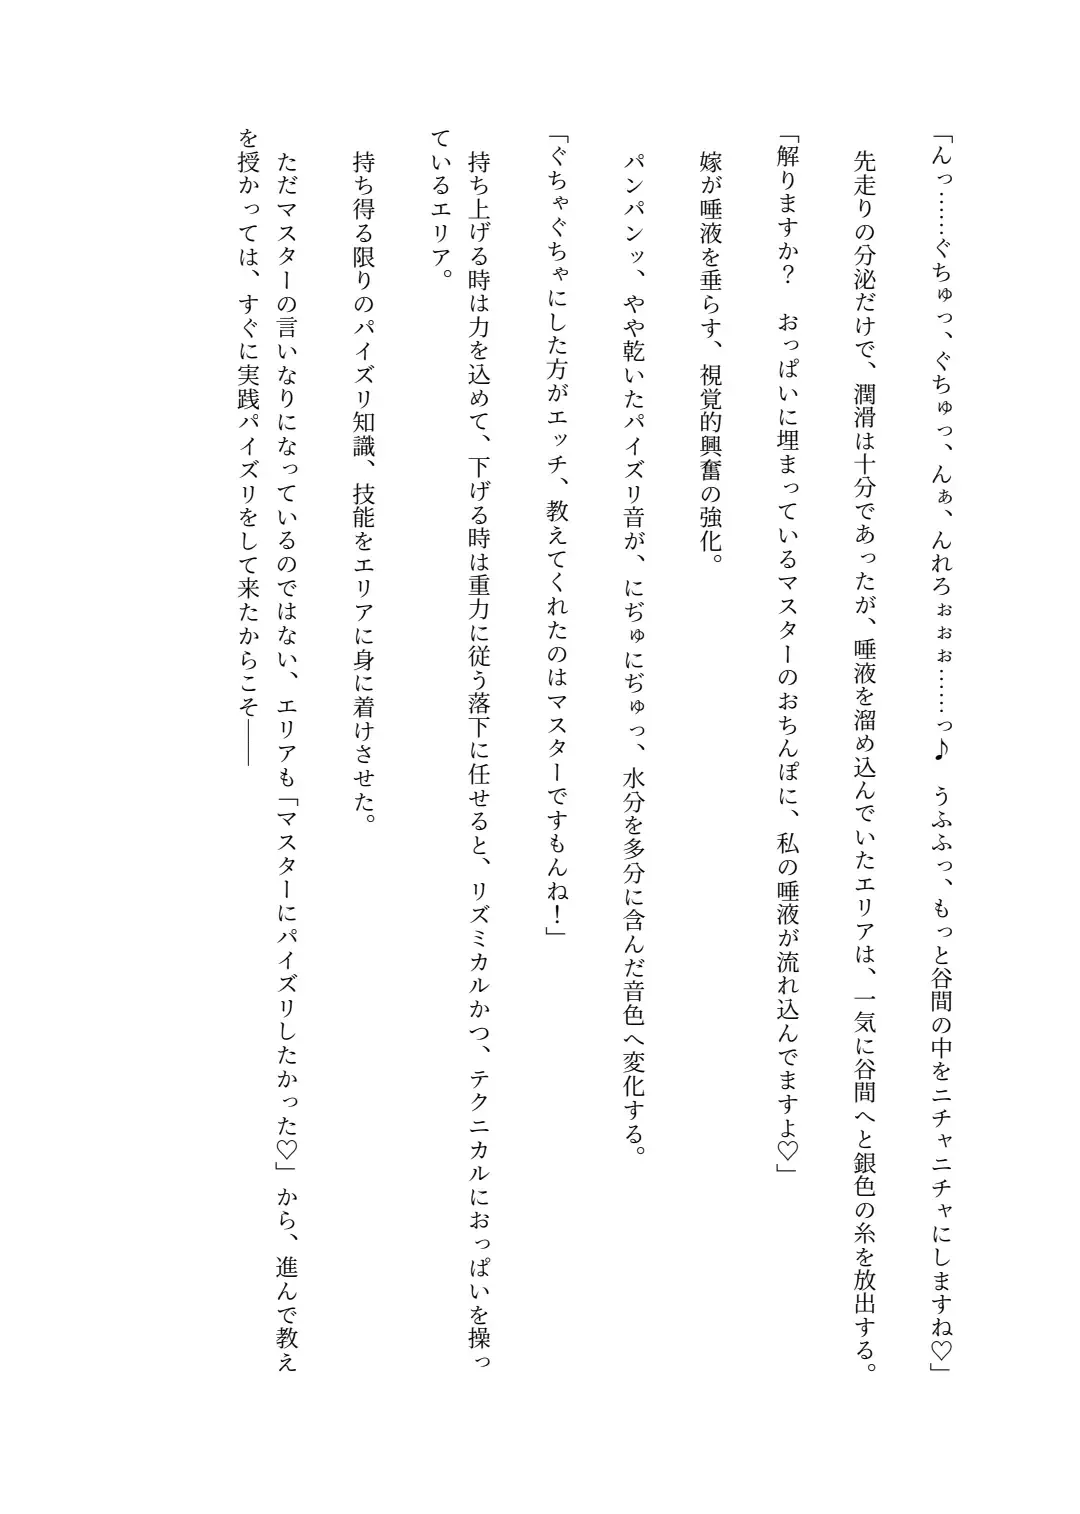 「んっ……ぐちゅっ、ぐちゅっ、んぁ、んれろぉぉぉ……っ♪　うふふっ、もっと谷間の中をニチャニチャにしますね♡」
　先走りの分泌だけで、潤滑は十分であったが、唾液を溜め込んでいたエリアは、一気に谷間へと銀色の糸を放出する。
「解りますか？　おっぱいに埋まっているマスターのおちんぽに、私の唾液が流れ込んでますよ♡」
　嫁が唾液を垂らす、視覚的興奮の強化。
　パンパンッ、やや乾いたパイズリ音が、にぢゅにぢゅっ、水分を多分に含んだ音色へ変化する。
「ぐちゃぐちゃにした方がエッチ、教えてくれたのはマスターですもんね！」
　持ち上げる時は力を込めて、下げる時は重力に従う落下に任せると、リズミカルかつ、テクニカルにおっぱいを操っ
ているエリア。
　持ち得る限りのパイズリ知識、技能をエリアに身に着けさせた。
　ただマスターの言いなりになっているのではない、エリアも「マスターにパイズリしたかった♡」から、進んで教え
を授かっては、すぐに実践パイズリをして来たからこそ――